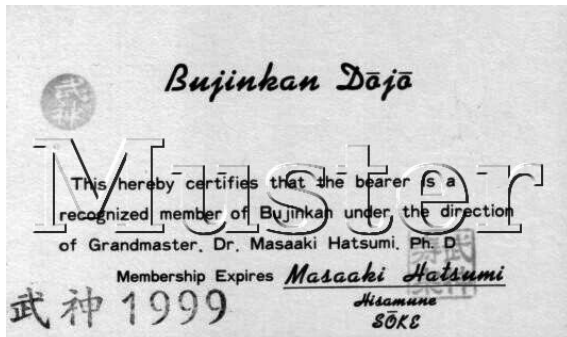 Bujinkan Dōjō
武神
Muster
This hereby certifies that the bearer is a
recognized member of Bujinkan under the direction
of Grandmaster. Dr. Masaaki Hatsumi. Ph. D
Membership Expires Masaaki Hatsumi
武神 1999
Hisamune
SŌKE